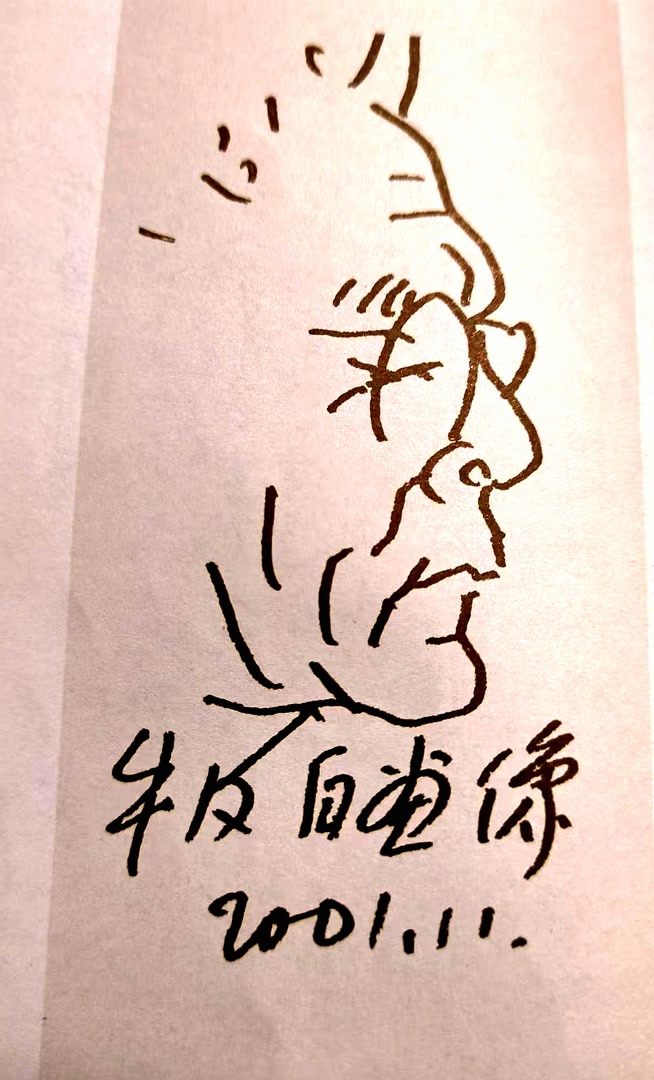 自畫像
2001.11.